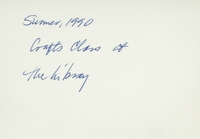 Summer, 1990
Crafts Class at
The Library